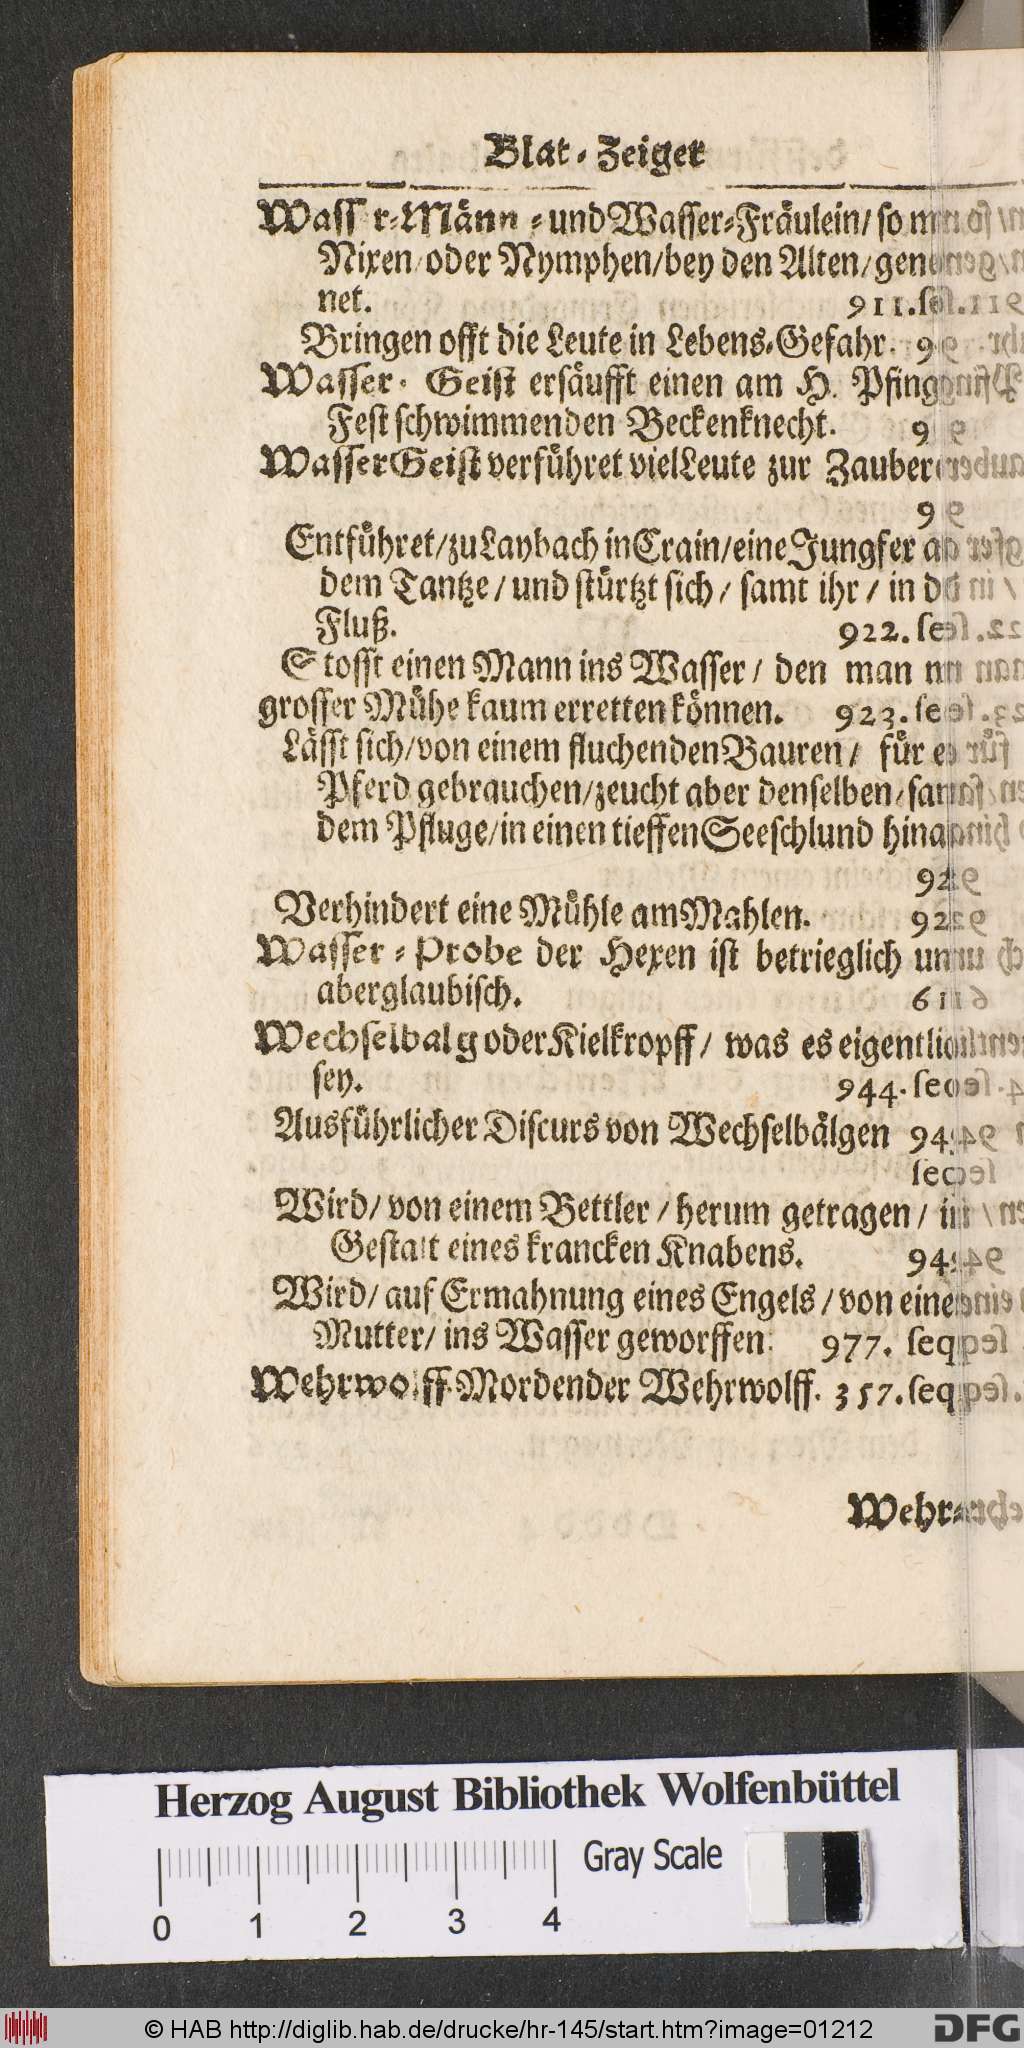 Blat-Zeiger
Wasser-Männ- und Wasser-Fräulein/ so
Nixen/ oder Nymphen/ bey den Alten/
net. 911.
Bringen offt die Leute in Lebens-Gefahr.
Wasser-Geist ersäufft einen am H. Pfing
Fest schwimmenden Beckenknecht.
Wasser Geist verführet viel Leute zur Zauber
Entführet/ zu Laybach in Crain/ eine Jungfer
dem Tantze/ und stürtzt sich/ samt ihr/ in
Fluß. 922.
Stosst einen Mann ins Wasser/ den man
grosser Mühe kaum erretten können. 923.
Lässt sich/ von einem fluchenden Bauren/ für
Pferd gebrauchen/ zeucht aber denselben/
dem Pfluge/ in einen tieffen Seeschlund
Verhindert eine Mühle am Mahlen.
Wasser-Probe der Hexen ist betrieglich
aberglaubisch.
Wechselbalg oder Kielkropff/ was es
sey. 944.
Ausführlicher Discurs von Wechselbälgen
Wird/ von einem Bettler/ herum getragen/
Gestalt eines krancken Knabens.
Wird/ auf Ermahnung eines Engels/ von
Mutter/ ins Wasser geworffen. 977. seq
Wehrwolff. Mordender Wehrwolff. 357. seq
Wehr-
Herzog August Bibliothek Wolfenbüttel
Gray Scale
0 1 2 3 4
© HAB http://diglib.hab.de/drucke/hr-145/start.htm?image=01212
DFG